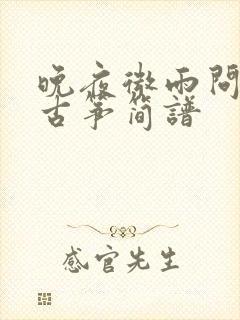 晚夜微雨問
古筝简譜
感官先生